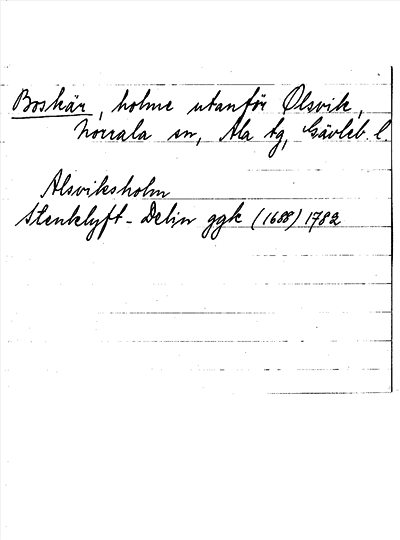 Boskär, holme utanför Ölsvik,
Norrala sn, Ala tg, Gävleb. l.
Alsviksholm
Stenklyft-Delin ggk (1688) 1782